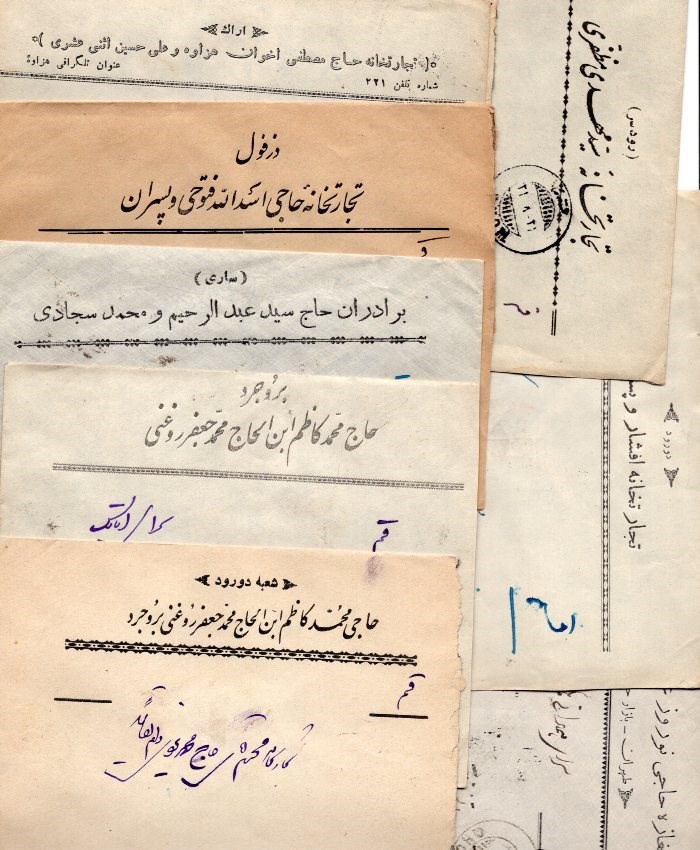 اراك
تجارتخانه حاج مصطفی اخوان هزاوه و علی حسین اثنی عشری
عنوان تلگرافی هزاوۀ
شماره تلفن ۲۲۱
دزفول
تجارتخانۀ حاجی اسدالله فتوحی و پسران
(ساری)
برادران حاج سید عبدالرحیم و محمد سجادی
بروجرد
حاج محمد کاظم ابن الحاج محمد جعفر روغنی
قم
شعبه دورود
حاجی محمد کاظم ابن الحاج محمد جعفر روغنی بروجرد
قم
حاج محمد
(رودسر)
تجارتخانۀ سید مهدی مظفری
قم
دورود
تجارتخانه افشار و پس
مغازه حاجی نوروز
طهران - بازار